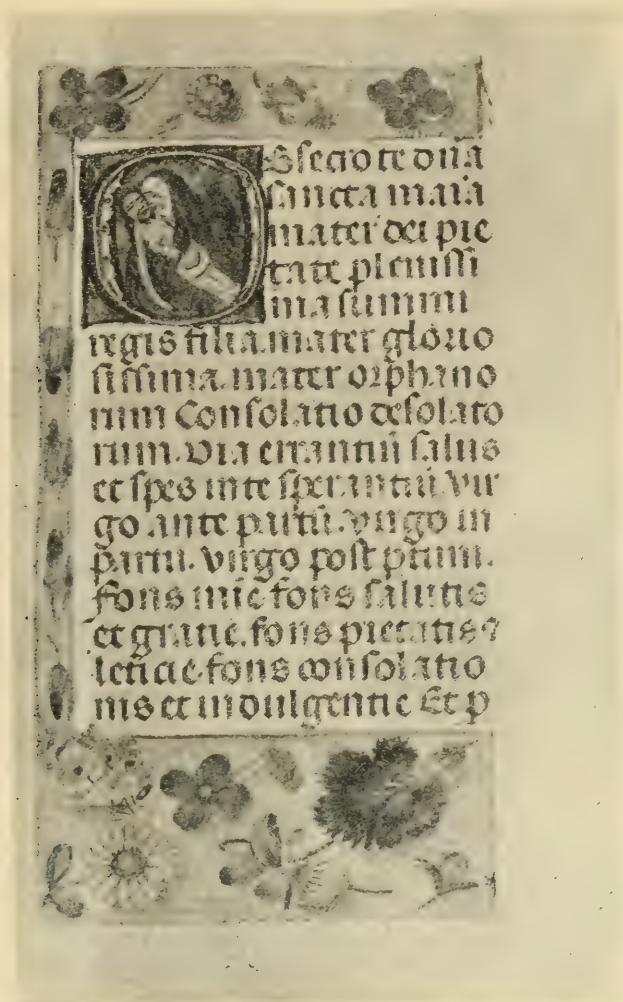 OBsecro te dn̄a
sancta maīa
mater dei pie
tate plenissi
ma summi
regis filia. mater glorio
sissima. mater orphano
rum Consolatio desolato
rum. via errantiū salus
et spes inte sperantiū. vir
go ante partū. virgo in
partu. virgo post ptum.
fons mīe fons salutis
et gratie. fons pietatis ⁊
leticie. fons consolatio
nis et indulgentie Et p